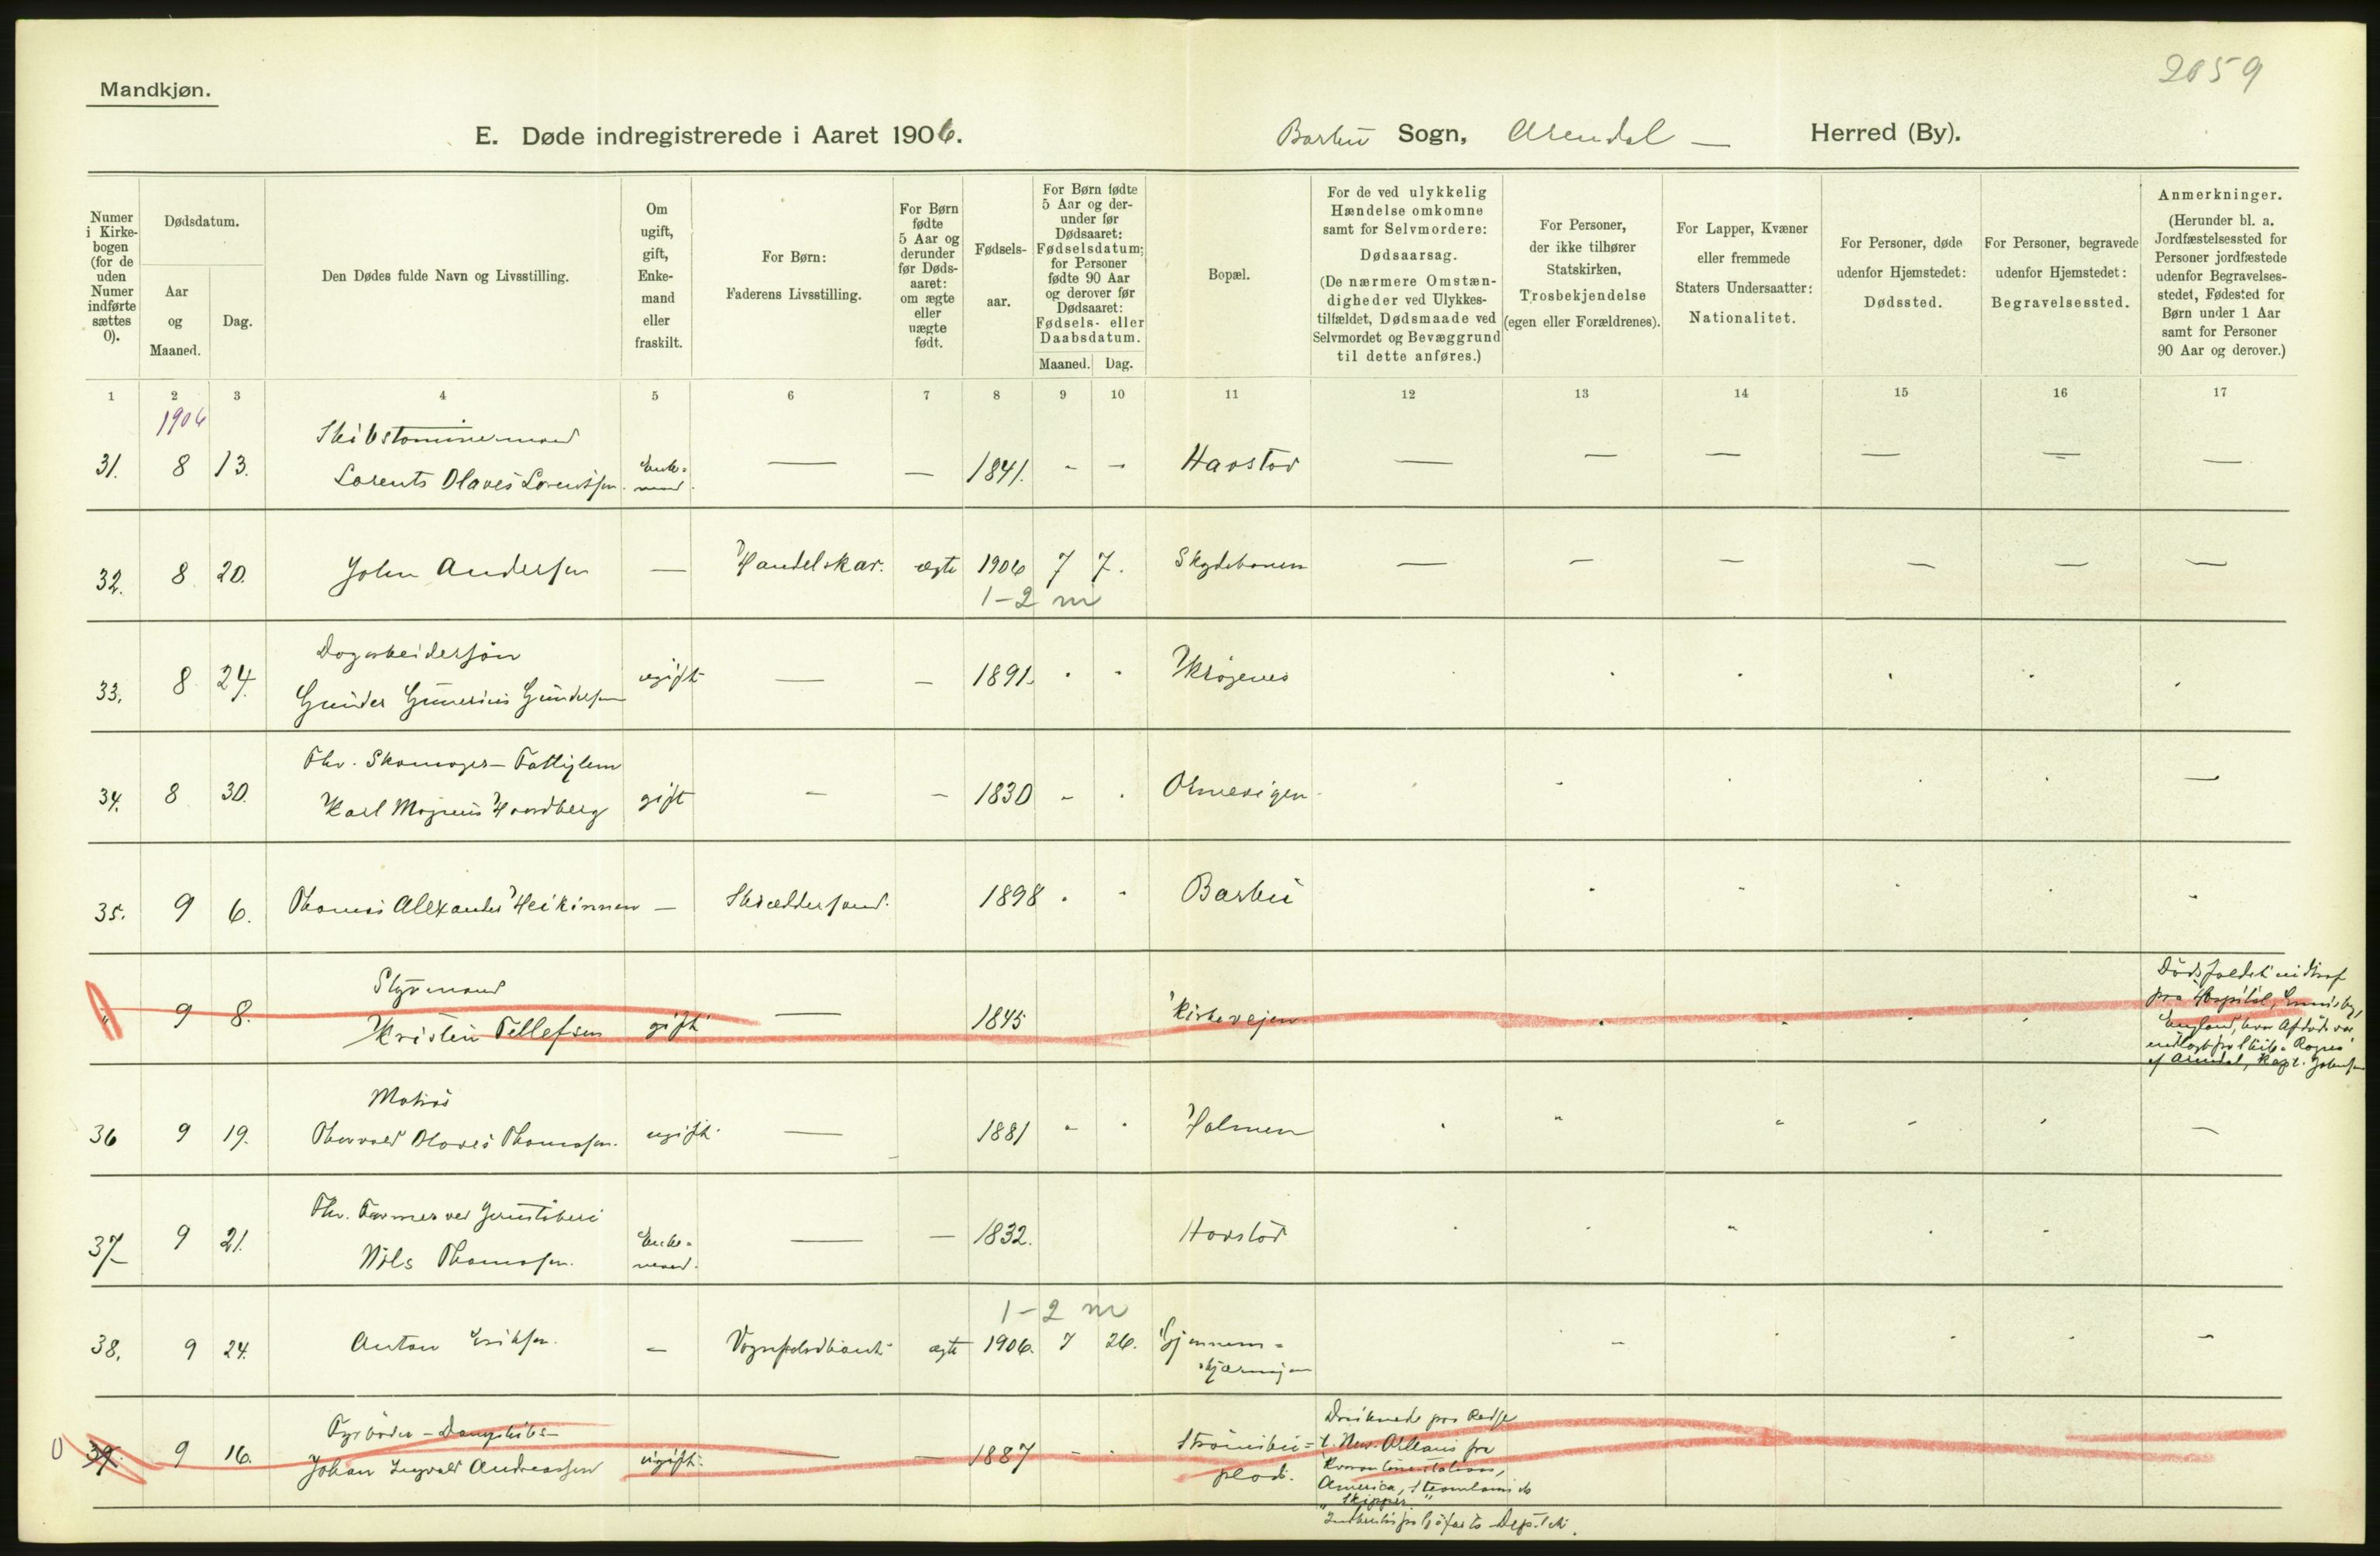 2059
Mandkjøn.
E. Døde indregistrerede i Aaret 1906. Barbu Sogn, Arendal — Herred (By).
Numer i Kirke-bogen (for de uden Numer indførte sættes 0).
Dødsdatum.
Aar og Maaned.
Dag.
Den Dødes fulde Navn og Livsstilling.
Om ugift, gift, Enke-mand eller fraskilt.
For Børn: Faderens Livsstilling.
For Børn fødte 5 Aar og derunder før Døds-aaret: om ægte eller uægte født.
Fødsels-aar.
For Børn fødte 5 Aar og der-under før Dødsaaret: Fødselsdatum; for Personer fødte 90 Aar og derover før Dødsaaret: Fødsels- eller Daabsdatum.
Maaned. Dag.
Bopæl.
For de ved ulykkelig Hændelse omkomne samt for Selvmordere: Dødsaarsag. (De nærmere Omstæn-digheder ved Ulykkes-tilfældet, Dødsmaade ved Selvmordet og Bevæggrund til dette anføres.)
For Personer, der ikke tilhører Statskirken, Trosbekjendelse (egen eller Forældrenes).
For Lapper, Kvæner eller fremmede Staters Undersaatter: Nationalitet.
For Personer, døde udenfor Hjemstedet: Dødssted.
For Personer, begravede udenfor Hjemstedet: Begravelsessted.
Anmerkninger. (Herunder bl. a. Jordfæstelsessted for Personer jordfæstede udenfor Begravelses-stedet, Fødested for Børn under 1 Aar samt for Personer 90 Aar og derover.)
1 2 3 4 5 6 7 8 9 10 11 12 13 14 15 16 17
1906
Skibstømmermand
31. 8 13. Lorents Olaves Lorentsen. Enke-mand. — — 1841. - - Havstad — — — — — —
32. 8 20. John Andersen — Handelskar. ægte 1906 7 7. Skydebanen — — — — — —
1-2 m
Dagarbeidersøn
33. 8 24. Gunder Gunerius Gundersen ugift — — 1891. Krøgenes
Fhv. Skomager - Fattiglem
34. 8 30. Karl Magnus Hvordberg gift — — 1830 - Omevigen —
35. 9 6. Thomas Alexander Heikinnen — Skræddersvend. 1898 Barbu
Styrmand
" 9 8. Kristen Tellefsen gift — 1845 Kirkevejen
Dødsfaldet indtraf
fra Hospital,
England, hvor Afdøde var
indlagt fra Skib. Ragna
af Arendal, Kapt. Johnsen
Matros
36 9 19. Thorvald Olaves Thomassen. ugift — 1881 - Holmen —
Fhv.
37 9 21. Nils Thomassen. Enke-mand. — — 1832. Havstad
1-2 m
38. 9 24. Anton Eriksen. — ægte 1906. 7 26. Gjennem-skjæringen —
Fyrbøder - Dampskibs-
0 39. 9 16. Johan Ingvald Andreassen ugift — — 1887 - Strømsbu-plads.
Druknede paa Reise
t. New. Orleans fra
America,
"Skipper"